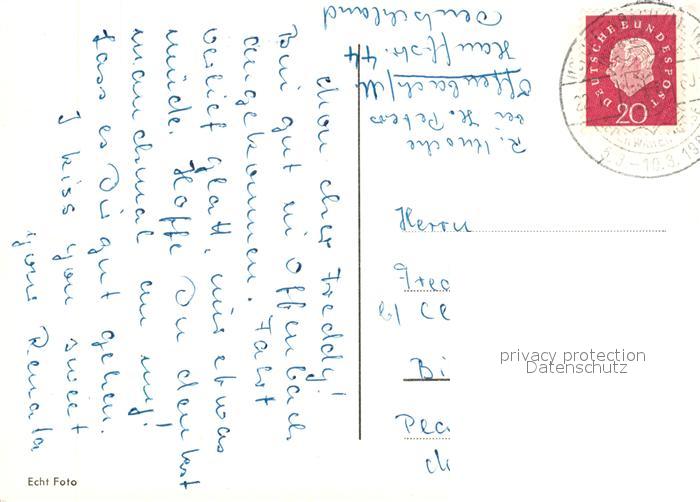 mon cher Freddy!
Bin gut in Offenbach
angekommen. Fahrt
verlief glatt, nur etwas
müde. Hoffe Du denkst
manchmal an mij
dass es Dir gut gehen.
I kiss you sweet
your Renata
R. Knoche
bei H. Peters
Offenbach/M.
Hauffstr. 44
Deutschland
DEUTSCHE BUNDESPOST
20
Herrn
Fred
b/ Cl
Bi
privacy protection
Datenschutz
Echt Foto